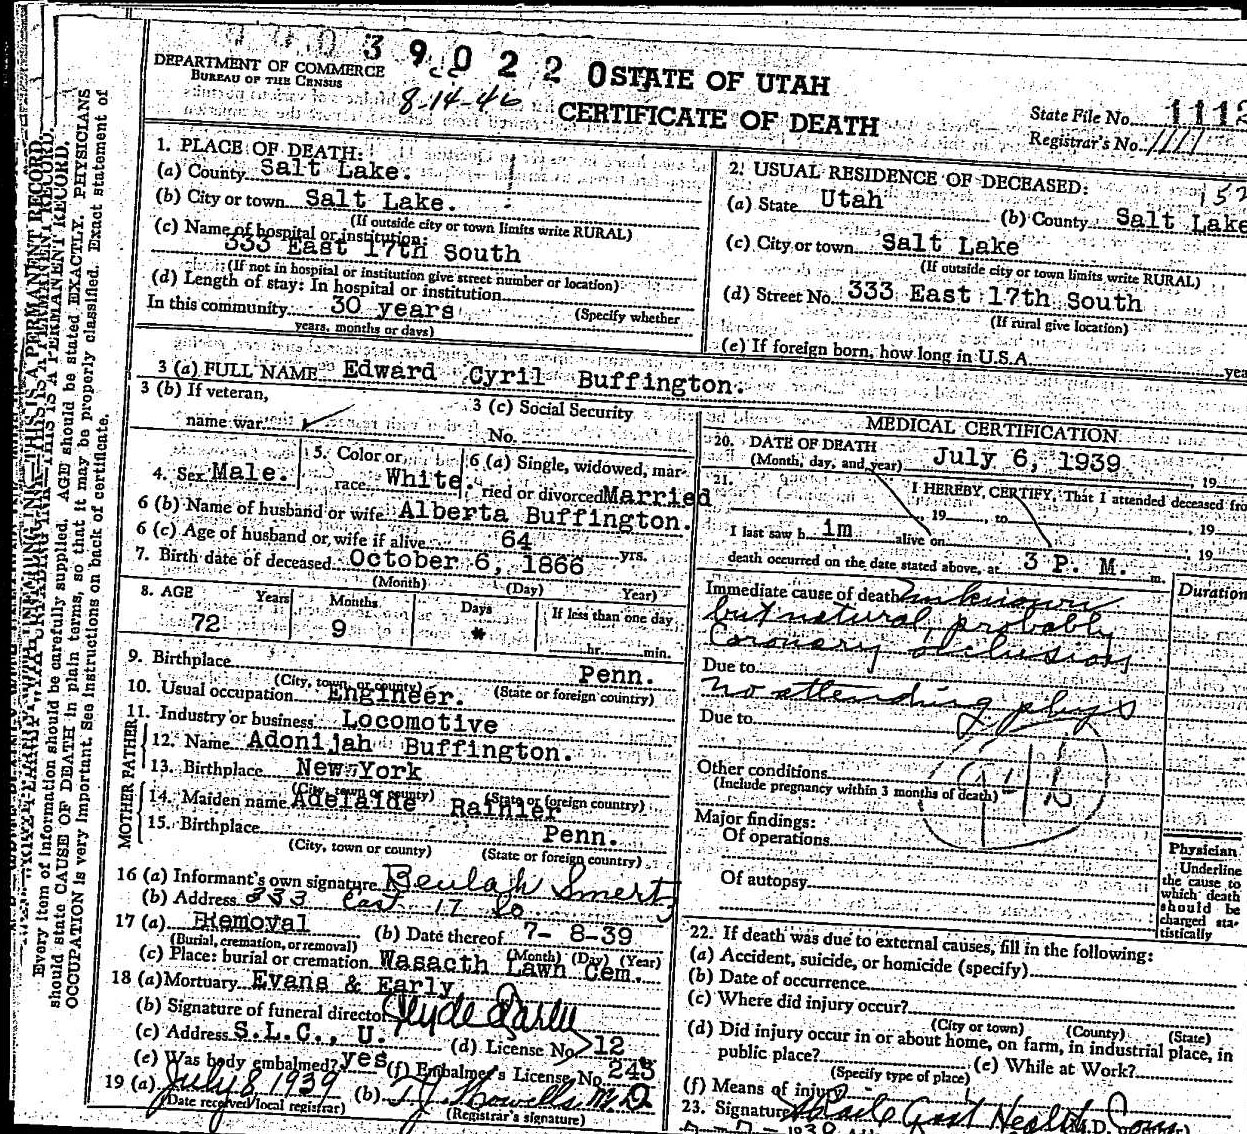 39022 0
DEPARTMENT OF COMMERCE
BUREAU OF THE CENSUS
8-14-46
STATE OF UTAH
CERTIFICATE OF DEATH
State File No. 111
Registrar's No. 1111
1. PLACE OF DEATH:
(a) County Salt Lake.
(b) City or town Salt Lake.
(If outside city or town limits write RURAL)
(c) Name of hospital or institution:
333 East 17th South
(If not in hospital or institution give street number or location)
(d) Length of stay: In hospital or institution
In this community 30 years (Specify whether
years, months or days)
2. USUAL RESIDENCE OF DECEASED:
(a) State Utah (b) County Salt Lake
(c) City or town Salt Lake
(If outside city or town limits write RURAL)
(d) Street No. 333 East 17th South
(If rural give location)
(e) If foreign born, how long in U.S.A. yea
3 (a) FULL NAME Edward Cyril Buffington.
3 (b) If veteran,
name war
3 (c) Social Security
No.
4. Sex Male.
5. Color or
race White.
6 (a) Single, widowed, mar-
ried or divorced Married
6 (b) Name of husband or wife Alberta Buffington.
6 (c) Age of husband or wife if alive 64 yrs.
7. Birth date of deceased October 6, 1866
(Month) (Day) Year)
8. AGE Years Months Days If less than one day
72 9 * hr. min.
9. Birthplace Penn.
(City, town or county) (State or foreign country)
10. Usual occupation Engineer.
11. Industry or business Locomotive
FATHER
12. Name Adonijah Buffington.
13. Birthplace New York
(City, town or county) (State or foreign country)
MOTHER
14. Maiden name Adelaide Rainier
15. Birthplace Penn.
(City, town or county) (State or foreign country)
16 (a) Informant's own signature Beulah Smertz
(b) Address 333 East 17 So
17 (a) Removal (b) Date thereof 7- 8-39
(Burial, cremation, or removal) (Month) (Day) (Year)
(c) Place: burial or cremation Wasacth Lawn Cem.
18 (a) Mortuary Evans & Early
(b) Signature of funeral director Clyde Early
(c) Address S.L.C., U. (d) License No. 12
(e) Was body embalmed? yes (f) Embalmer's License No. 245
19 (a) July 8 1939 (b) T.J. Howells M.D.
(Date received local registrar) (Registrar's signature)
MEDICAL CERTIFICATION
20. DATE OF DEATH
(Month, day, and year) July 6, 1939 19
21. I HEREBY CERTIFY, That I attended deceased fro
19 , to , 19
I last saw h im alive on , 19
death occurred on the date stated above, at 3 P. M. m.
Immediate cause of death Unknown
but natural, probably
Coronary occlusion
Duration
Due to
no attending phys
Due to
Other conditions
(Include pregnancy within 3 months of death)
Major findings:
Of operations
Of autopsy
Physician
Underline
the cause to
which death
should be
charged sta-
tistically
22. If death was due to external causes, fill in the following:
(a) Accident, suicide, or homicide (specify)
(b) Date of occurrence
(c) Where did injury occur?
(City or town) (County) (State)
(d) Did injury occur in or about home, on farm, in industrial place, in
public place? (e) While at Work?
(Specify type of place)
(f) Means of injury
23. Signature Health Com
Every item of information should be carefully supplied. AGE should be stated EXACTLY. PHYSICIANS
should state CAUSE OF DEATH in plain terms, so that it may be properly classified. Exact statement of
OCCUPATION is very important. See instructions on back of certificate.